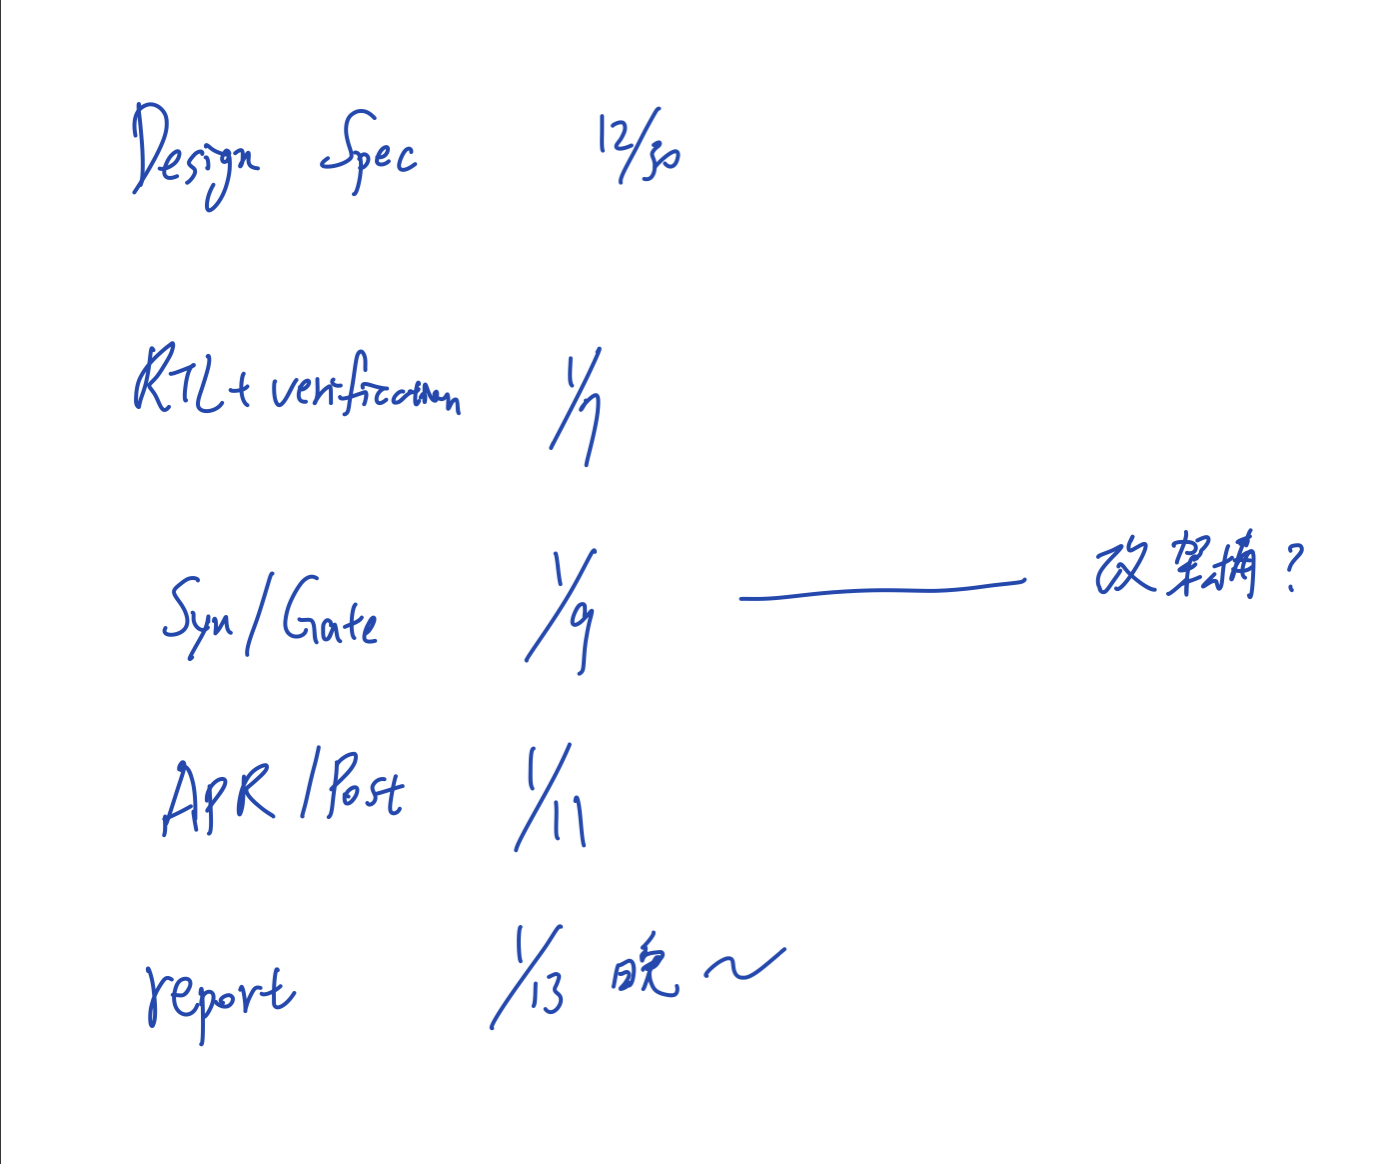 Design Spec 12/30
RTL + verification 1/7
Syn/Gate 1/9 —— 改架構?
APR/Post 1/11
report 1/13 晚~